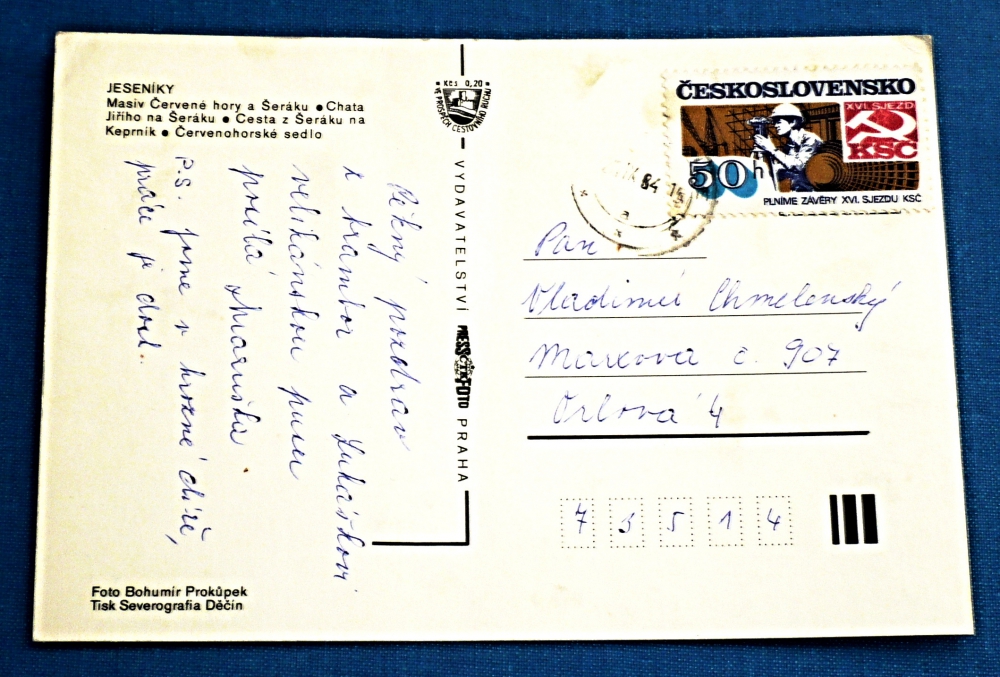 JESENÍKY
Masiv Červené hory a Šeráku ● Chata
Jiřího na Šeráku ● Cesta z Šeráku na
Keprník ● Červenohorské sedlo
Pěkný pozdrav
z brambor a Lukáškovi
velikánskou pusu
posílá Maruška.
P.S. jsme v hrozné díře,
práce je dost.
Foto Bohumír Prokůpek
Tisk Severografia Děčín
Kčs 0,20
VE PROSPĚCH CESTOVNÍHO RUCHU
VYDAVATELSTVÍ PRESSFOTO PRAHA
ČTK
ČESKOSLOVENSKO
XVI. SJEZD
KSČ
50 h
PLNÍME ZÁVĚRY XVI. SJEZDU KSČ
Pan
Vladimír Chmelenský
Marxova č. 907
Orlová 4
7 3 5 1 4